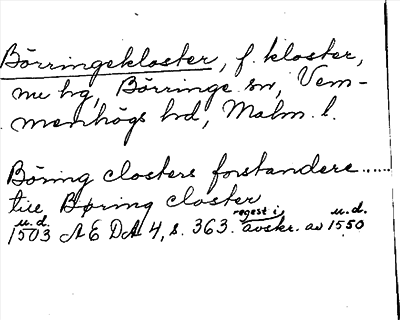 Börringekloster, f. kloster,
nu hg, Börringe sn, Vem-
menhögs hd, Malm. l.
Böring closters forstandere.....
till Børing closter
u.d. regest i u.d.
1503 AEDA 4, s. 363. avskr. av 1550